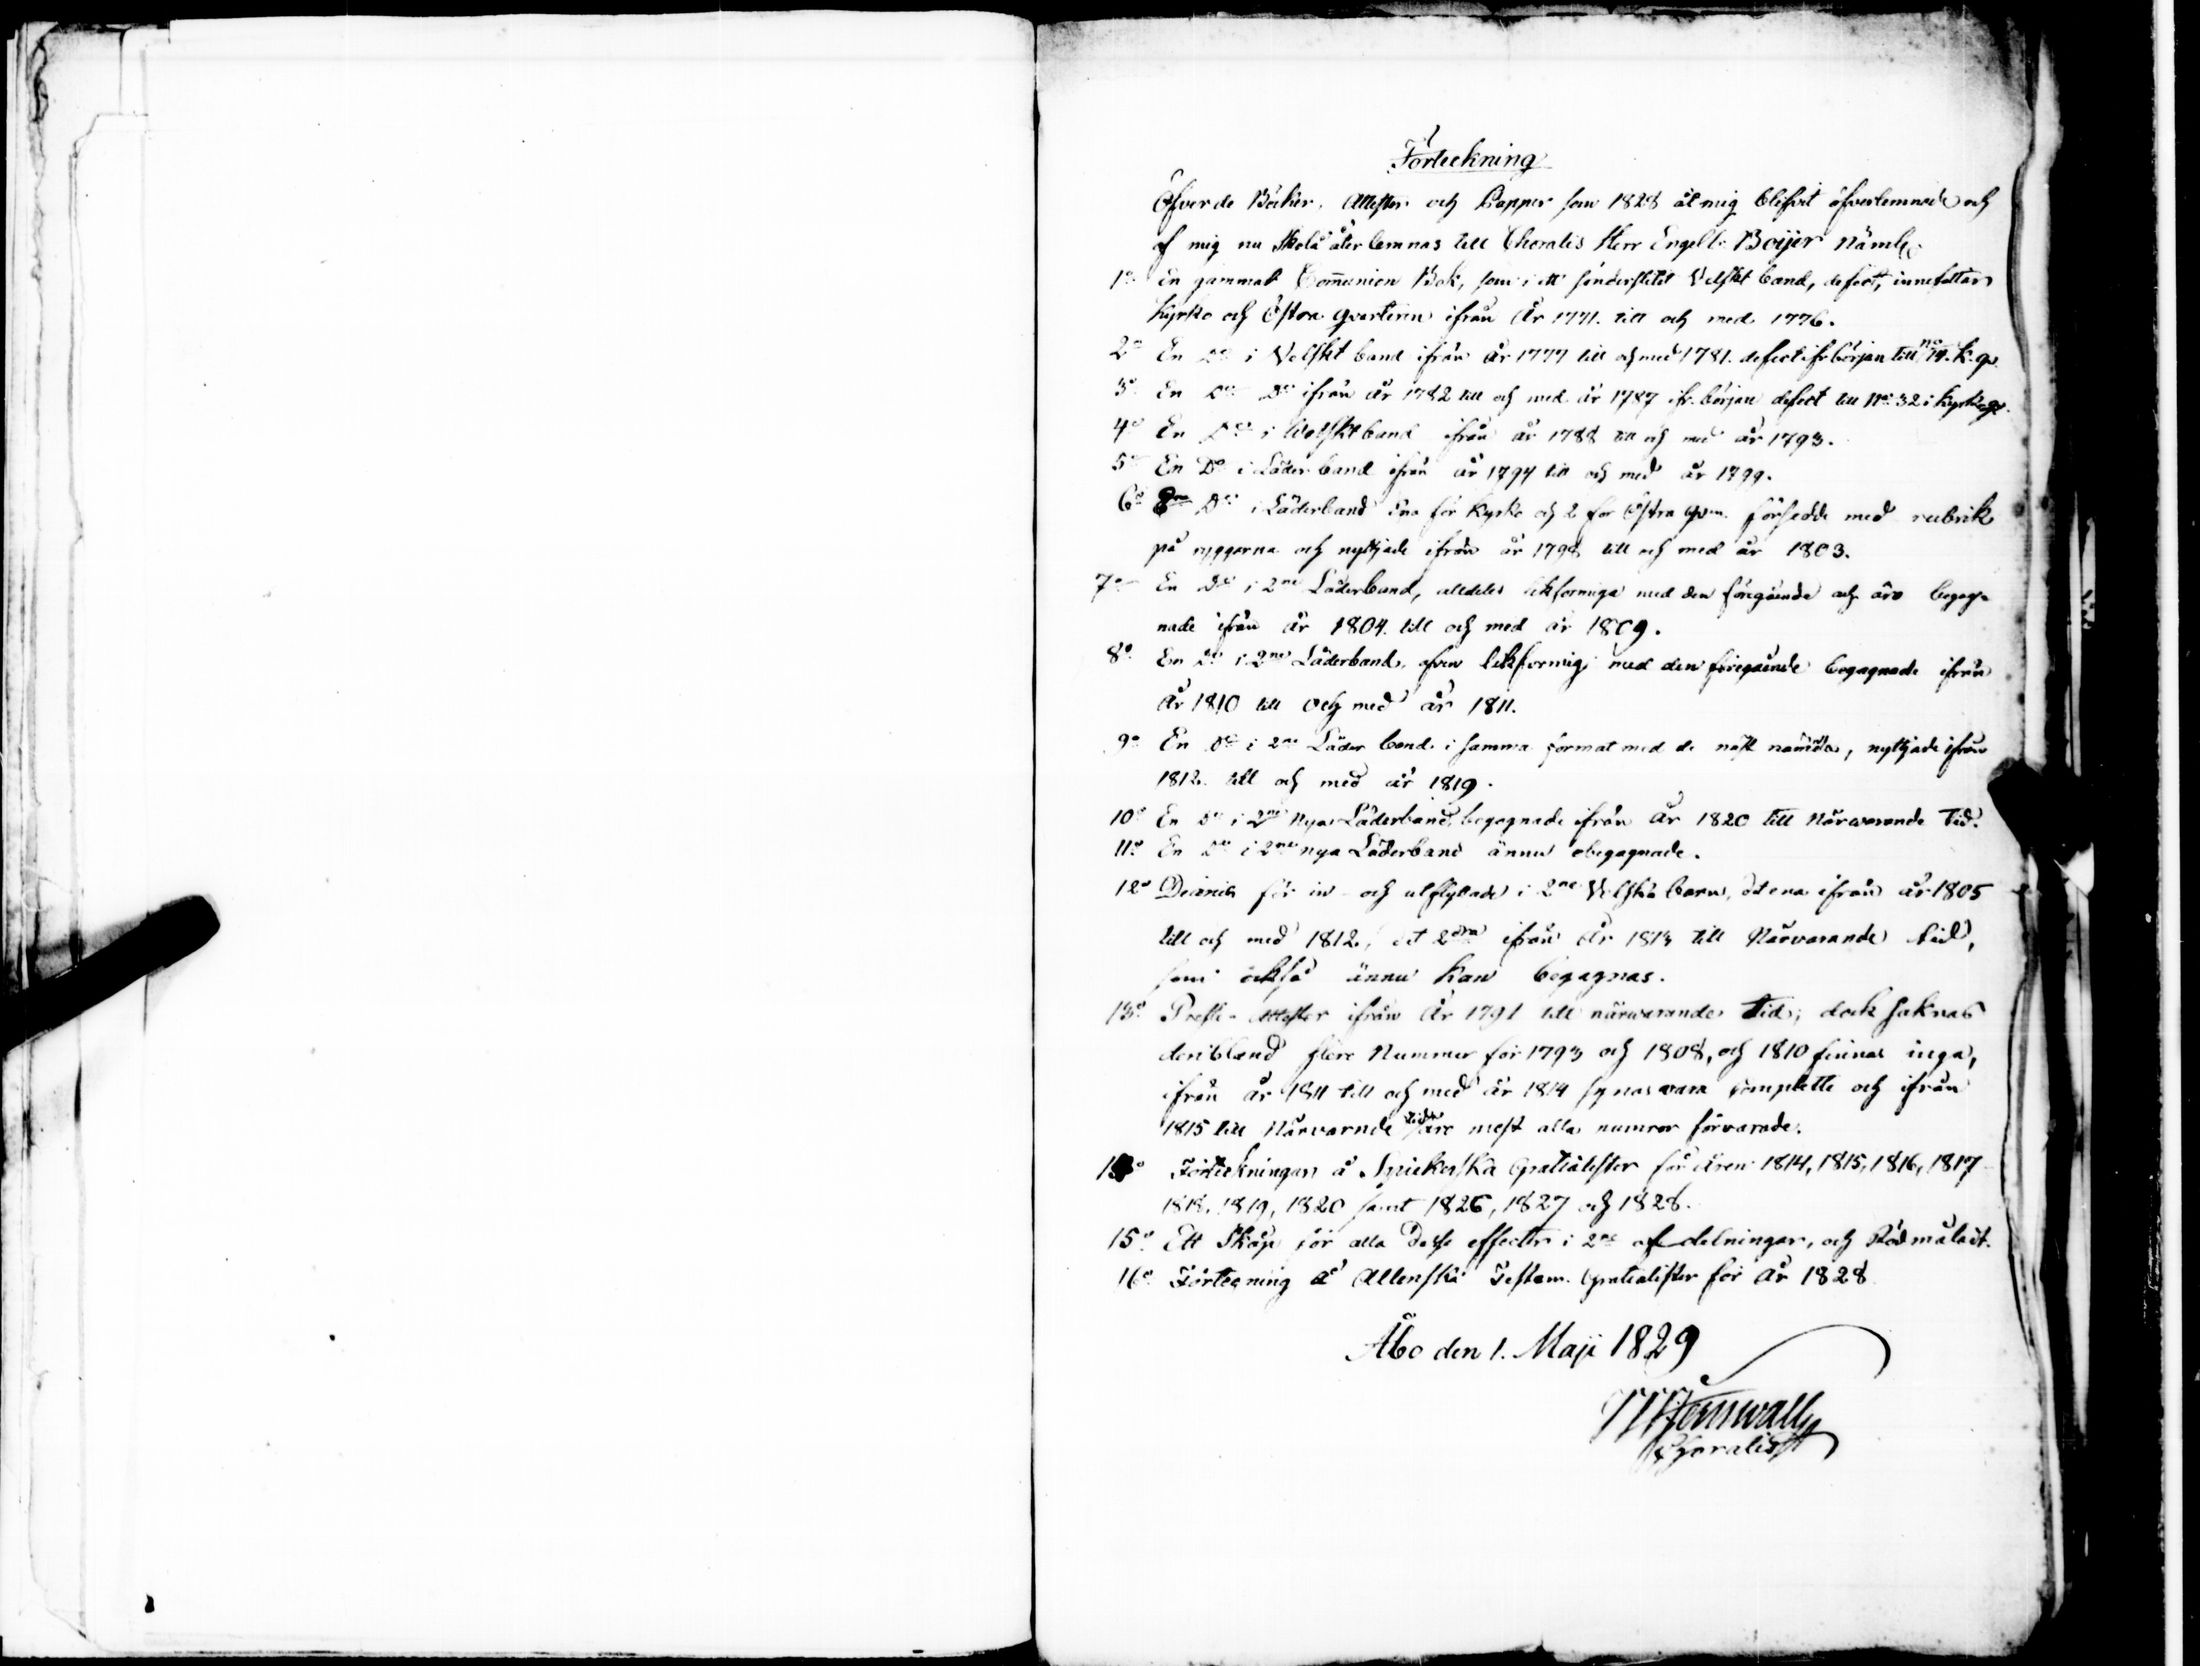 Förteckning
Öfver de Böcker, Attester och Papper som 1828 åt mig blifvit öfverlemnade och
af mig nu skola återlemnas till Choralis Herr Engelb. Boijer näml:
1o En gammal Communion Bok, som i ett sönderslitit Velskt band, defect, innefattar
Kyrko och Östra qvarteren ifrån År 1771. till och med 1776.
2o En Do i Velskt band ifrån År 1777 till och med 1781. defect ifr början till no 14. K. qv.
3o En Do Do ifrån År 1782 till och med år 1787 ifr. början defect till No 32 i Kyrko qv.
4o En Do i Welskt band ifrån år 1788 till och med år 1793.
5o En Do i Läder band ifrån år 1794 till och med år 1799.
6o Do i Läderband för Kyrko och 2 for Östra qvn. försedde med rubrik
på ryggarna och nyttjade ifrån år 1798 till och med år 1803.
7o En Do i 2ne Läderband, alldeles likformiga med den föregående och äro begag-
nade ifrån år 1804. till och med år 1809.
8o En Do i 2ne Läderband, äfven likformig med den föregående begagnade ifrån
År 1810 till och med år 1811.
9o En Do i 2ne Läder band i samma format med de näst nämnda, nyttjade ifrån
1812. till och med år 1819.
10o En Do i 2ne nya Läderband, begagnade ifrån År 1820 till Närwarande tid.
11o En Do i 2ne nya Läderband ännu obegagnade.
12o för in- och utflyttade i 2ne Velska band, det ena ifrån år 1805
till och med 1812, det 2dra ifrån År 1813 till Närvarande tid,
som också ännu kan begagnas.
13o Preste-Attester ifrån År 1791 till närwarande tid; dock saknas
deribland flere Nummer för 1793 och 1808, och 1810 finnas inga,
ifrån år 1811 till och med år 1814 synas vara complette och ifrån
1815 till Närvarnde tid äro mest alla numror förvarade.
Förteckningar å Spiekerska Gratialister för åren 1814, 1815, 1816, 1817
1818. 1819, 1820 samt 1826, 1827 och 1828.
15o Ett Skåp för alla desse effecter i 2ne afdelningar, och Rödmåladt.
16o Förtecning å Allenska Testam. Gratialister för År 1828
Åbo den 1. Maji 1829
Choralist